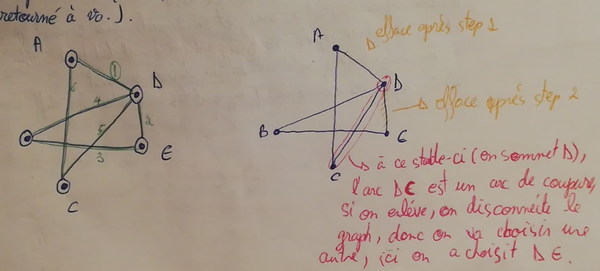 retourné à vo.).
A
1
D
6
4
5
2
3
E
C
A
efface après step 1
D
→ efface après step 2
B
C
C
→ à ce stade-ci (on sommet D),
l'arc DC est un arc de coupure,
si on enlève, on disconnecte le
graph, donc on va choisir une
autre, ici on a choisit DE.